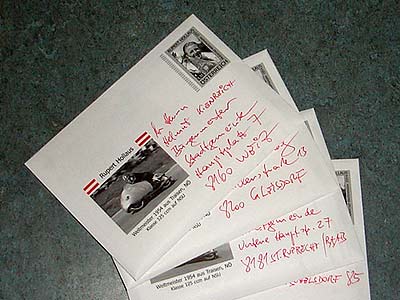 RUPERT HOLLAUS
ÖSTERREICH
Rupert Hollaus
Weltmeister 1954 aus Traisen, NÖ
Klasse 125 ccm auf NSU
Herrn
Helmut KIENREICH
Bürgermeister
Stadtgemeinde
Hauptplatz 7
8160 WEIZ
8200 GLEISDORF
Untere Hauptstr. 27
8181 ST. RUPRECHT/RAAB
Weltmeister 1954 aus Traisen, NÖ
Klasse 125 ccm auf NSU
85